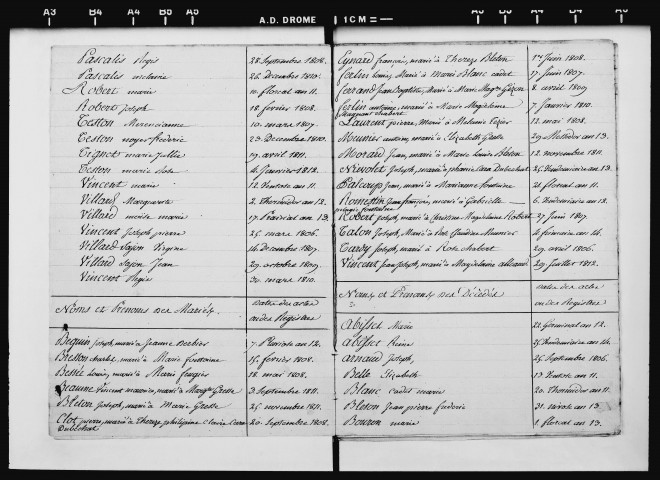 A3 B4 A4 B5 A5 A.D. DROME 1 CM = A5 B5 A4 B4 A3
Pascalis Régis 28 Septembre 1808.
Pascalis 26 Decembre 1810.
Robert marie floréal an 11.
Robert Joseph 18 fevrier 1808.
Teston Merencianne 10 mars 1807.
Teston noyer frédéric 23 Decembre 1810.
Tignet marie julie 19 avril 1811.
Teston marie 4 janvier 1812.
Vincent marie 12 Ventose an 11.
Villard Marguerite 2 Thermidor an 12.
Villard marie 17 Prairial an 13.
Vincent Joseph pierre 25 mars 1806.
Villard Sajon Virginie 14 Decembre 1807.
Villard Sajon Jean 29 octobre 1809.
Vincent Régis 30 mars 1810.
Noms et Prénoms des Mariés. Datte des actes
ou des Registres
Béguin Joseph, marié à Jeanne Berbier 7 Pluviose an 12.
Bresson charles, marié à Marie fontaine 15 fevrier 1808.
Bessée Louis, marié à Marie feugier 18 mai 1808.
Beaume Vincent marie à Marg.te Gresse 3 Septembre 1811.
Bleton Joseph, marié à Marie Gresse 25 novembre 1811.
Clot pierre, marié à Thereze philipine Claire Cara 20 Septembre 1808.
Dubechat
Eynard françois, marié à Thereze Bleton 1er Juin 1808.
ferlin Louis, Marié à Marie Blanc cadet 17 Juin 1807.
ferrand Jean Baptiste, Marié à Marie Magne 8 avril 1809
ferlin antoine, marié à Marie Magdeleine 7 Janvier 1810.
Laurent pierre, Marié à Melanie 12 mai 1808.
Meunier antoine, marié à Elizabeth Gresse 29 Messidor an 13.
Morard Jean, marié à Marie Louise Bleton 12 novembre 1811.
Nievolet Joseph, marié à Cara Dubechat 25 Vendemiaire an 13.
jean, marié à Marianne fontaine 21 floréal an 11.
Jean françois, marié à Gabrielle 6 Vendemiaire an 13.
Robert joseph, marié à Justine Magdelaine Robert 27 Juin 1807.
Talon Joseph, Marié à Meunier 4 frimaire an 14.
Tardy Joseph, marié à Rose chabert 29 avril 1806.
Vincent Jean Joseph, marié à Magdelaine alleaud 29 Juillet 1812.
Noms et Prénoms des Décédés Datte des actes
ou des Registres
Abisset Marie 22 Germinal an 12.
abisset Reine 25 Vendemiaire an 14.
arnaud Joseph, 25 Septembre 1806.
Belle Elizabeth 13 Ventose an 11.
Blanc cadet marie 20 Thermidor an 11.
Bleton Jean pierre frederic 31 an 13.
Bouron marie 1 floreal an 13.